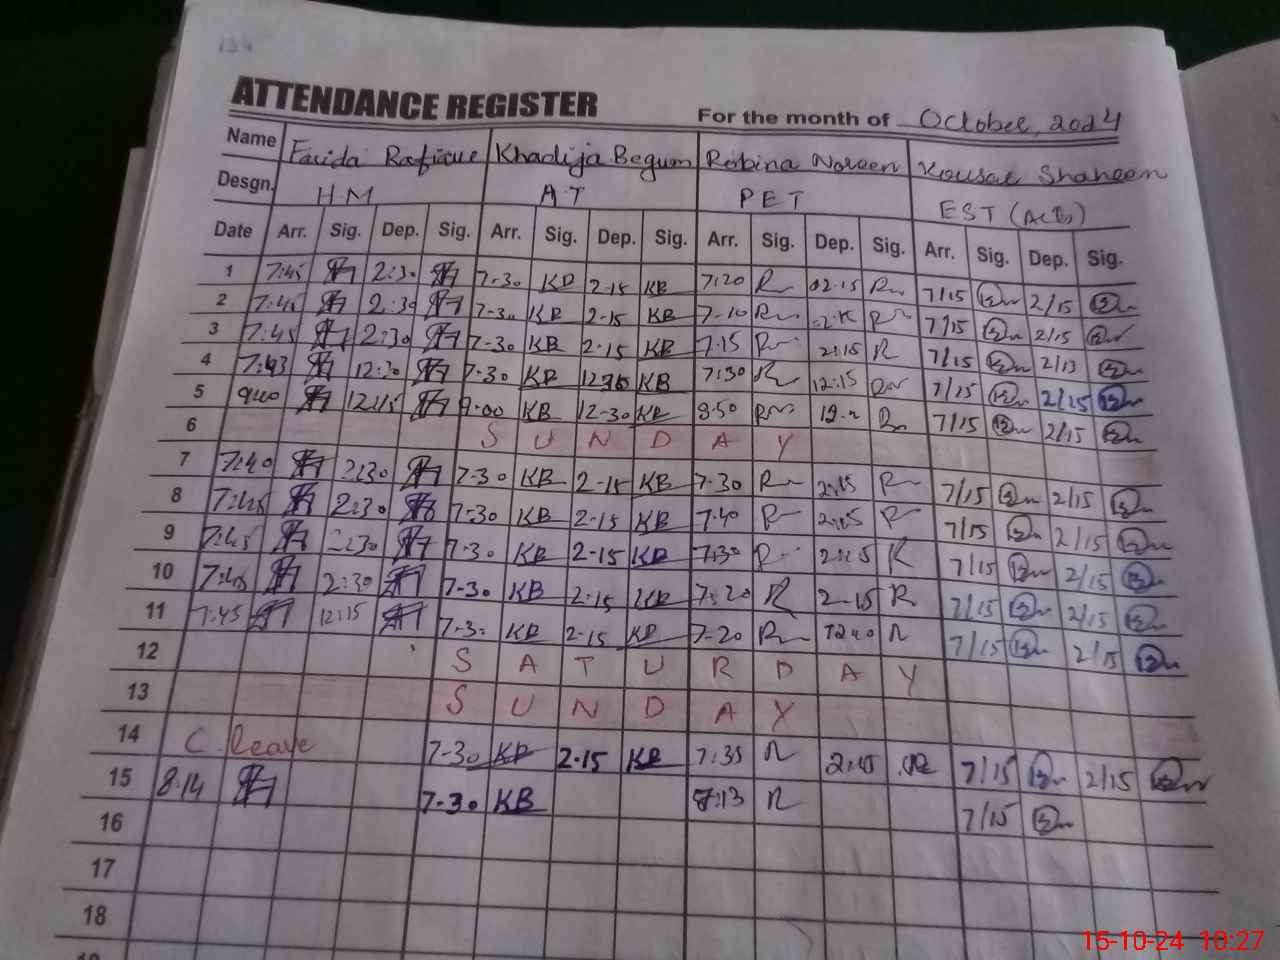 134
ATTENDANCE REGISTER For the month of October, 2024
Name Farida Rafique Khadija Begum Robina Noreen Kousar Shaheen
Desgn. HM AT PET EST (Acb)
Date Arr. Sig. Dep. Sig. Arr. Sig. Dep. Sig. Arr. Sig. Dep. Sig. Arr. Sig. Dep. Sig.
1 7:45 2:30 7-30 KB 2-15 KB 7:20 02-15 7/15 2/15
2 7:45 2:30 7-30 KB 2-15 KB 7-10 7/15 2/15
3 7:45 2:30 7-30 KB 2-15 KB 7:15 2:15 R 7/15 2/15
4 7:43 12:30 7-30 KB KB 7:30 12:15 7/15 2/15
5 12:15 9-00 KB 12-30 KB 8:50 7/15 2/15
6 S U N D A Y
7 7:40 2:30 7-30 KB 2-15 KB 7-30 2:15 7/15 2/15
8 7:45 2:30 7-30 KB 2-15 KB 7:40 7/15 2/15
9 7:45 2:30 7-30 KB 2-15 KB 7:30 2:15 R 7/15 2/15
10 7:45 2:30 7-30 KB 2-15 KB 7:20 R 2-15 R 7/15 2/15
11 7:45 12:15 7-30 KB 2-15 KB 7-20 7/15 2/15
12 S A T U R D A Y
13 S U N D A Y
14 C. leave 7-30 KB 2-15 KB 7:35 7/15 2/15
15 8:14 7-30 KB 8:13 7/15
16
17
18
15-10-24 10:27